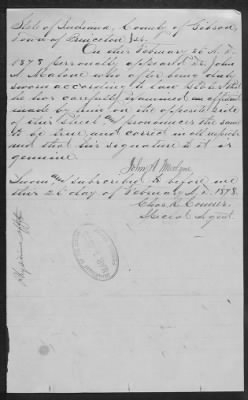 State of Indiana, County of Gibson,
Town of Princeton } ss.
On this February 26 A. D.
1878 personally appeared Dr. John
A Malone who after being duly
sworn according to law says that
he has carefully examined an affidavit
made by him on the opposite side
of this sheet and pronounces the same
to be true and correct in all respects
and that his signature to it is
genuine.
John A Malone
Sworn and subscribed to before me
this 26 day of February A. D. 1878.
Special Agent.